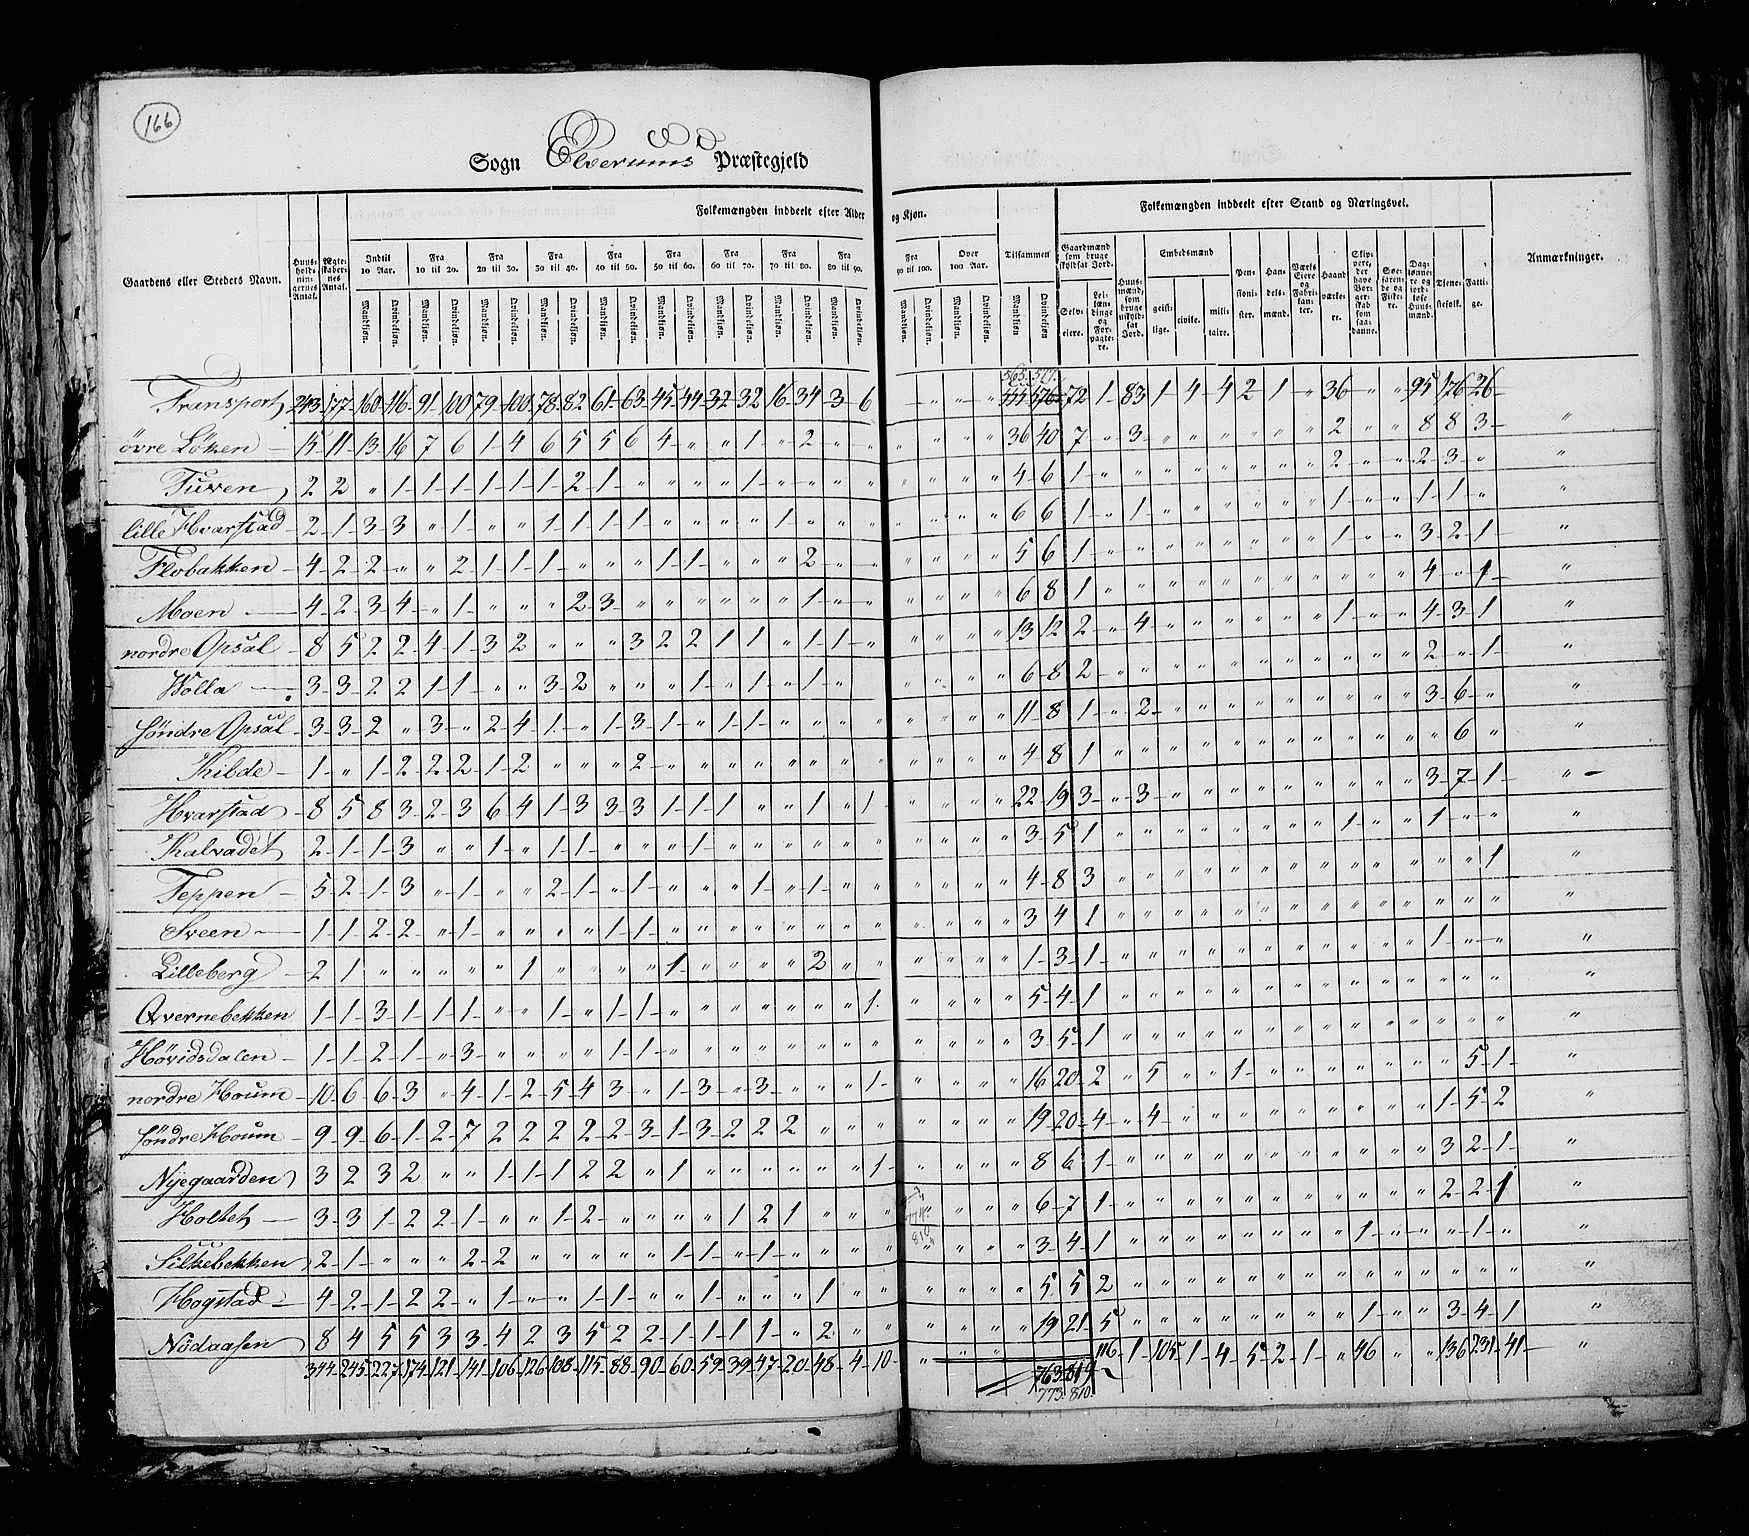 166
Sogn Elverums Præstegjeld
Gaardens eller Stedets Navn.
Huusholdningernes Antal.
Ægteskabernes Antal.
Folkemængden inddeelt efter Alder og Kjøn.
Indtil 10 Aar. Fra 10 til 20. Fra 20 til 30. Fra 30 til 40. Fra 40 til 50. Fra 50 til 60. Fra 60 til 70. Fra 70 til 80. Fra 80 til 90. Fra 90 til 100. Over 100 Aar. Tilsammen
Mandkjøn. Qvindekjøn.
Folkemængden inddeelt efter Stand og Næringsvei.
Gaardmænd som bruge skyldsat Jord.
Selveiere.
Leilændinge og Forpagtere.
Huusmænd, som bruge uskyldsat Jord.
Embedsmænd
geistlige. civile. militaire.
Pensionister.
Handelsmænd.
Værks Eiere og Fabrikanter.
Haandværkere.
Skippere, der have Borgerskab som saadanne.
Søefarende og Fiskere.
Daglønnere og jordløse Huusmænd.
Tjenestefolk.
Fattige.
Anmærkninger.
565. 577.
Transport 243 177 160 116 91 100 79 100 78 82 61 63 45 44 32 32 16 34 3 6 72 1 83 1 4 4 2 1 36 " " 95 176 26
øvre Løken 15 11 13 16 7 6 1 4 6 5 5 6 4 " " 1 " 2 " " " " " " 36 40 7 " 3 " " " " " " 2 " " 8 8 3 "
Tuven 2 2 " 1 1 1 1 1 1 2 1 " " " " 1 " " " " " " " " 4 6 1 " " " " " " " " 2 " " 2 3 " "
lille Hvarstad 2 1 3 3 " 1 " " 1 1 1 1 " " " " 1 " " " " " " " 6 6 1 " 1 " " " " " " 1 " " 1 1 " "
Flobakken 4 2 2 " " 2 1 1 1 " " " 1 1 " " " 2 " " " " " " 5 6 1 " " " " " " " " 1 " " 3 2 1 "
Moen 4 2 3 4 " 1 " " " 2 3 " " " " " " 1 " " " " " " 6 8 1 " " " " " " " " " " " 4 " 1 "
nordre Opsal 8 5 2 2 4 1 3 2 " " " 3 2 2 1 1 " 1 1 " " " " " 13 12 2 " 4 " " " " " " 1 " " 4 3 1 "
Wolla 3 3 2 2 1 1 " " 3 2 " " " 1 " 1 " 1 " " " " " 6 8 2 " " " " " " " " " " " 2 " 1 "
søndre Opsal 3 3 2 " 3 " 2 4 1 " 1 3 1 " 1 1 " " " " " " " " 11 8 1 " 2 " " " " " " " " " 3 6 " "
Kilde 1 " 1 2 2 2 1 2 " " " 2 " " " " " " " " " " " " 4 8 1 " " " " " " " " " " " " 6 " "
Hvarstad 8 5 8 3 2 3 6 4 1 3 3 3 1 1 1 " " 1 " 1 " " " " 22 19 3 " 3 " " " " " " " " " 3 7 1 "
Kalvadet 2 1 1 3 " " 1 " 1 1 " " " 1 " " " " " " " " " " 3 5 1 " " " " " " " " 1 " " 1 " " "
Teppen 5 2 1 3 " 1 " " 2 1 " 1 " " " 1 " 1 " " " " " " 4 8 3 " " " " " " " " " " " " " 1 "
Sveen 1 1 2 2 " 1 " " " " 1 1 " " " " " " " " " " " " 3 4 1 " " " " " " " " " " " " " " "
Lilleberg 2 1 " " " " " 1 " " " " 1 " " " " 2 " " " " " " 1 3 1 " " " " " " " " " " " 1 " " "
Qvernebekken 1 1 3 1 1 1 " " 1 " 1 1 " " " " " " " 1 " " " " 5 4 1 " " " " " " " " " " " " " " "
Høvidsdalen 1 1 2 1 " 3 " " " " 1 1 " " " " " " " " " " " " 3 5 1 " " " " " " " " " " " " " " "
nordre Houm 10 6 6 3 " 4 1 2 5 4 3 " 1 3 " 3 " " " 1 " " " " 16 20 2 " 5 " " 1 " " " " " " " 5 1 "
søndre Houm 9 9 6 1 2 7 2 2 2 2 2 3 1 3 2 2 2 " " " " " " " 19 20 4 " 4 " " " " " " " " " 1 5 2
Nyegaarden 3 2 3 2 " " 1 1 1 2 2 " 1 " " " " " " 1 " " " " 8 6 1 " " " " " " " " " " " 3 2 1 "
Holtet 3 3 1 2 2 1 " " 1 2 " " " " 1 2 1 " " " " " " " 6 7 1 " " " " " " " " " " " 2 2 1 "
Silkebekken 2 1 " " " " 2 2 " " " " 1 1 " 1 " " " " " " " " 3 4 1 " " " " " " " " 1 " " " 1 " "
Hogstad 4 2 1 2 2 " 1 " " 1 1 " " 1 " " " 1 " " " " " " 5 5 2 " " " " " " " " " " " " " " "
Nødaasen 8 4 5 5 3 3 4 2 3 5 2 2 1 1 1 1 " 2 " " " " " " 19 21 5 " " " " " " " " 1 " " 3 4 1 "
344 245 227 174 121 141 106 126 108 115 88 90 60 59 39 47 20 48 4 10 763 819 116 1 105 1 4 5 2 1 " 46 " " 136 231 41
773. 810.